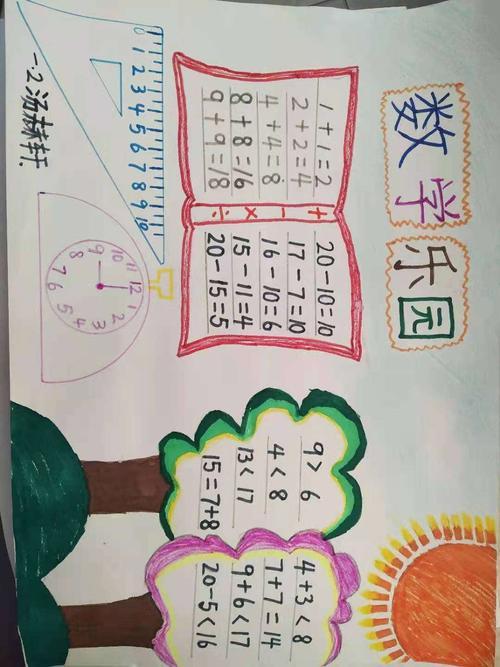 数学乐园
1+1=2
2+2=4
4+4=8
8+8=16
9+9=18
+ − × ÷
20-10=10
17-7=10
16-10=6
15-11=4
20-15=5
9>6
4<8
13<17
15=7+8
4+3<8
7+7=14
9+6<17
20-5<16
0 1 2 3 4 5 6 7 8 9 10
12 1 2 3 4 5 6 7 8 9 10 11
一.2汤赫轩